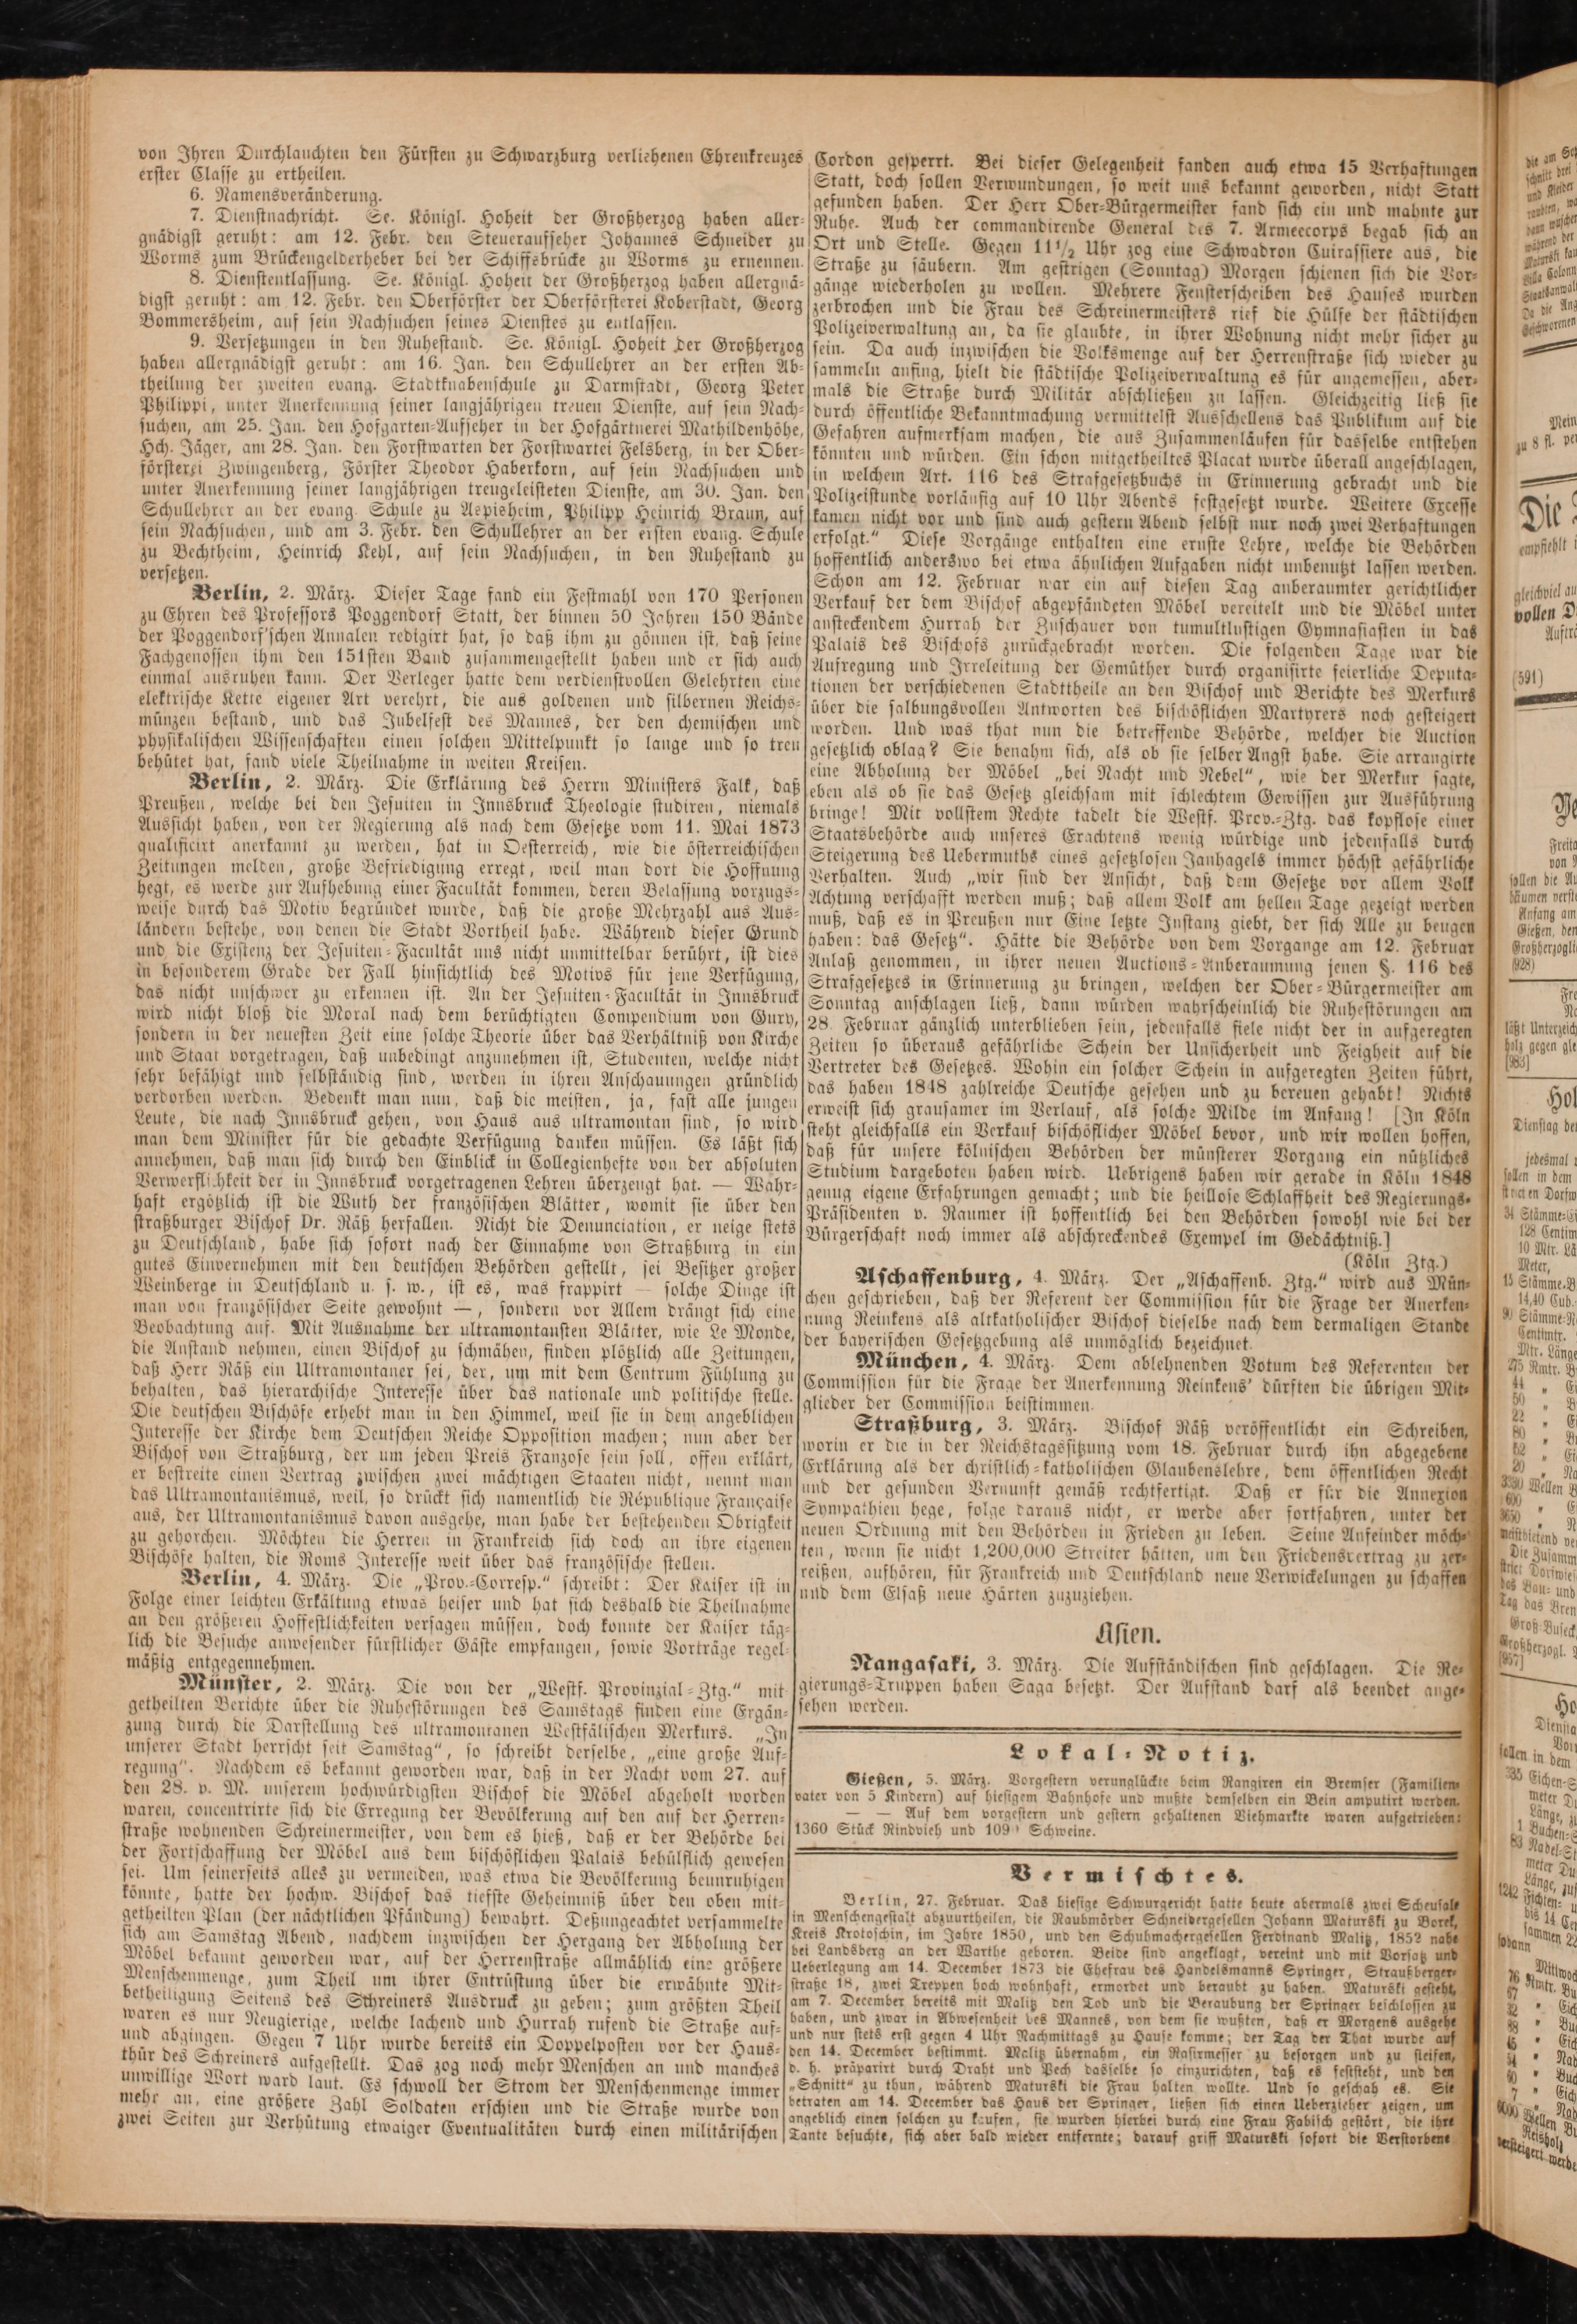 von Ihren Durchlauchten den Fürsten zu Schwarzburg verliehenen Ehrenkreuzes
erster Classe zu ertheilen.
6. Namensveränderung.
7. Dienstnachricht. Se. Königl. Hoheit der Großherzog haben aller-
gnädigst geruht: am 12. Febr. den Steueraufseher Johannes Schneider zu
Worms zum Brückengelderheber bei der Schiffsbrücke zu Worms zu ernennen.
8. Dienstentlassung. Se. Königl. Hoheit der Großherzog haben allergnä-
digst geruht: am 12. Febr. den Oberförster der Oberförsterei Koberstadt, Georg
Bommersheim, auf sein Nachsuchen seines Dienstes zu entlassen.
9. Versetzungen in den Ruhestand. Se. Königl. Hoheit der Großherzog
haben allergnädigst geruht: am 16. Jan. den Schullehrer an der ersten Ab-
theilung der zweiten evang. Stadtknabenschule zu Darmstadt, Georg Peter
Philippi, unter Anerkennung seiner langjährigen treuen Dienste, auf sein Nach-
suchen, am 25. Jan. den Hofgarten-Aufseher in der Hofgärtnerei Mathildenhöhe,
Hch. Jäger, am 28. Jan. den Forstwarten der Forstwartei Felsberg, in der Ober-
försterei Zwingenberg, Förster Theodor Haberkorn, auf sein Nachsuchen und
unter Anerkennung seiner langjährigen treugeleisteten Dienste, am 30. Jan. den
Schullehrer an der evang. Schule zu Aspisheim, Philipp Heinrich Braun, auf
sein Nachsuchen, und am 3. Febr. den Schullehrer an der ersten evang. Schule
zu Bechtheim, Heinrich Kehl, auf sein Nachsuchen, in den Ruhestand zu
versetzen.
Berlin, 2. März. Dieser Tage fand ein Festmahl von 170 Personen
zu Ehren des Professors Poggendorf Statt, der binnen 50 Jahren 150 Bände
der Poggendorf'schen Annalen redigirt hat, so daß ihm zu gönnen ist, daß seine
Fachgenossen ihm den 151sten Band zusammengestellt haben und er sich auch
einmal ausruhen kann. Der Verleger hatte dem verdienstvollen Gelehrten eine
elektrische Kette eigener Art verehrt, die aus goldenen und silbernen Reichs-
münzen bestand, und das Jubelfest des Mannes, der den chemischen und
physikalischen Wissenschaften einen solchen Mittelpunkt so lange und so treu
behütet hat, fand viele Theilnahme in weiten Kreisen.
Berlin, 2. März. Die Erklärung des Herrn Ministers Falk, daß
Preußen, welche bei den Jesuiten in Innsbruck Theologie studiren, niemals
Aussicht haben, von der Regierung als nach dem Gesetze vom 11. Mai 1873
qualificirt anerkannt zu werden, hat in Oesterreich, wie die österreichischen
Zeitungen melden, große Befriedigung erregt, weil man dort die Hoffnung
hegt, es werde zur Aufhebung einer Facultät kommen, deren Belassung vorzugs-
weise durch das Motiv begründet wurde, daß die große Mehrzahl aus Aus-
ländern bestehe, von denen die Stadt Vortheil habe. Während dieser Grund
und die Existenz der Jesuiten-Facultät uns nicht unmittelbar berührt, ist dies
in besonderem Grade der Fall hinsichtlich des Motivs für jene Verfügung,
das nicht unschwer zu erkennen ist. An der Jesuiten-Facultät in Innsbruck
wird nicht bloß die Moral nach dem berüchtigten Compendium von Gury,
sondern in der neuesten Zeit eine solche Theorie über das Verhältniß von Kirche
und Staat vorgetragen, daß unbedingt anzunehmen ist, Studenten, welche nicht
sehr befähigt und selbständig sind, werden in ihren Anschauungen gründlich
verdorben werden. Bedenkt man nun, daß die meisten, ja, fast alle jungen
Leute, die nach Innsbruck gehen, von Haus aus ultramontan sind, so wird
man dem Minister für die gedachte Verfügung danken müssen. Es läßt sich
annehmen, daß man sich durch den Einblick in Collegienhefte von der absoluten
Verwerflichkeit der in Innsbruck vorgetragenen Lehren überzeugt hat. — Wahr-
haft ergötzlich ist die Wuth der französischen Blätter, womit sie über den
straßburger Bischof Dr. Räß herfallen. Nicht die Denunciation, er neige stets
zu Deutschland, habe sich sofort nach der Einnahme von Straßburg in ein
gutes Einvernehmen mit den deutschen Behörden gestellt, sei Besitzer großer
Weinberge in Deutschland u. s. w., ist es, was frappirt — solche Dinge ist
man von französischer Seite gewohnt —, sondern vor Allem drängt sich eine
Beobachtung auf. Mit Ausnahme der ultramontansten Blätter, wie Le Monde,
die Anstand nehmen, einen Bischof zu schmähen, finden plötzlich alle Zeitungen,
daß Herr Räß ein Ultramontaner sei, der, um mit dem Centrum Fühlung zu
behalten, das hierarchische Interesse über das nationale und politische stelle.
Die deutschen Bischöfe erhebt man in den Himmel, weil sie in dem angeblichen
Interesse der Kirche dem Deutschen Reiche Opposition machen; nun aber der
Bischof von Straßburg, der um jeden Preis Franzose sein soll, offen erklärt,
er bestreite einen Vertrag zwischen zwei mächtigen Staaten nicht, nennt man
das Ultramontanismus, weil, so drückt sich namentlich die République Française
aus, der Ultramontanismus davon ausgehe, man habe der bestehenden Obrigkeit
zu gehorchen. Möchten die Herren in Frankreich sich doch an ihre eigenen
Bischöfe halten, die Roms Interesse weit über das französische stellen.
Berlin, 4. März. Die „Prov.-Corresp.“ schreibt: Der Kaiser ist in
Folge einer leichten Erkältung etwas heiser und hat sich deshalb die Theilnahme
an den größeren Hoffestlichkeiten versagen müssen, doch konnte der Kaiser täg-
lich die Besuche anwesender fürstlicher Gäste empfangen, sowie Vorträge regel-
mäßig entgegennehmen.
Münster, 2. März. Die von der „Westf. Provinzial-Ztg.“ mit-
getheilten Berichte über die Ruhestörungen des Samstags finden eine Ergän-
zung durch die Darstellung des ultramontanen Westfälischen Merkurs. „In
unserer Stadt herrscht seit Samstag“, so schreibt derselbe, „eine große Auf-
regung“. Nachdem es bekannt geworden war, daß in der Nacht vom 27. auf
den 28. v. M. unserem hochwürdigsten Bischof die Möbel abgeholt worden
waren, concentrirte sich die Erregung der Bevölkerung auf den auf der Herren-
straße wohnenden Schreinermeister, von dem es hieß, daß er der Behörde bei
der Fortschaffung der Möbel aus dem bischöflichen Palais behülflich gewesen
sei. Um seinerseits alles zu vermeiden, was etwa die Bevölkerung beunruhigen
könnte, hatte der hochw. Bischof das tiefste Geheimniß über den oben mit-
getheilten Plan (der nächtlichen Pfändung) bewahrt. Deßungeachtet versammelte
sich am Samstag Abend, nachdem inzwischen der Hergang der Abholung der
Möbel bekannt geworden war, auf der Herrenstraße allmählich eine größere
Menschenmenge, zum Theil um ihrer Entrüstung über die erwähnte Mit-
betheiligung Seitens des Schreiners Ausdruck zu geben; zum größten Theil
waren es nur Neugierige, welche lachend und Hurrah rufend die Straße auf-
und abgingen. Gegen 7 Uhr wurde bereits ein Doppelposten vor der Haus-
thür des Schreiners aufgestellt. Das zog noch mehr Menschen an und manches
unwillige Wort ward laut. Es schwoll der Strom der Menschenmenge immer
mehr an, eine größere Zahl Soldaten erschien und die Straße wurde von
zwei Seiten zur Verhütung etwaiger Eventualitäten durch einen militärischen
Cordon gesperrt. Bei dieser Gelegenheit fanden auch etwa 15 Verhaftungen
Statt, doch sollen Verwundungen, so weit uns bekannt geworden, nicht Statt
gefunden haben. Der Herr Ober-Bürgermeister fand sich ein und mahnte zur
Ruhe. Auch der commandirende General des 7. Armeecorps begab sich an
Ort und Stelle. Gegen 11½ Uhr zog eine Schwadron Cuirassiere aus, die
Straße zu säubern. Am gestrigen (Sonntag) Morgen schienen sich die Vor-
gänge wiederholen zu wollen. Mehrere Fensterscheiben des Hauses wurden
zerbrochen und die Frau des Schreinermeisters rief die Hülfe der städtischen
Polizeiverwaltung an, da sie glaubte, in ihrer Wohnung nicht mehr sicher zu
sein. Da auch inzwischen die Volksmenge auf der Herrenstraße sich wieder zu
sammeln anfing, hielt die städtische Polizeiverwaltung es für angemessen, aber-
mals die Straße durch Militär abschließen zu lassen. Gleichzeitig ließ sie
durch öffentliche Bekanntmachung vermittelst Ausschellens das Publikum auf die
Gefahren aufmerksam machen, die aus Zusammenläufen für dasselbe entstehen
könnten und würden. Ein schon mitgetheiltes Placat wurde überall angeschlagen,
in welchem Art. 116 des Strafgesetzbuchs in Erinnerung gebracht und die
Polizeistunde vorläufig auf 10 Uhr Abends festgesetzt wurde. Weitere Excesse
kamen nicht vor und sind auch gestern Abend selbst nur noch zwei Verhaftungen
erfolgt.“ Diese Vorgänge enthalten eine ernste Lehre, welche die Behörden
hoffentlich anderswo bei etwa ähnlichen Aufgaben nicht unbenutzt lassen werden.
Schon am 12. Februar war ein auf diesen Tag anberaumter gerichtlicher
Verkauf der dem Bischof abgepfändeten Möbel vereitelt und die Möbel unter
ansteckendem Hurrah der Zuschauer von tumultlustigen Gymnasiasten in das
Palais des Bischofs zurückgebracht worden. Die folgenden Tage war die
Aufregung und Irreleitung der Gemüther durch organisirte feierliche Deputa-
tionen der verschiedenen Stadttheile an den Bischof und Berichte des Merkurs
über die salbungsvollen Antworten des bischöflichen Martyrers noch gesteigert
worden. Und was that nun die betreffende Behörde, welcher die Auction
gesetzlich oblag? Sie benahm sich, als ob sie selber Angst habe. Sie arrangirte
eine Abholung der Möbel „bei Nacht und Nebel“, wie der Merkur sagte,
eben als ob sie das Gesetz gleichsam mit schlechtem Gewissen zur Ausführung
bringe! Mit vollstem Rechte tadelt die Westf. Prov.-Ztg. das kopflose einer
Staatsbehörde auch unseres Erachtens wenig würdige und jedenfalls durch
Steigerung des Uebermuths eines gesetzlosen Janhagels immer höchst gefährliche
Verhalten. Auch „wir sind der Ansicht, daß dem Gesetze vor allem Volk
Achtung verschafft werden muß; daß allem Volk am hellen Tage gezeigt werden
muß, daß es in Preußen nur Eine letzte Instanz giebt, der sich Alle zu beugen
haben: das Gesetz“. Hätte die Behörde von dem Vorgange am 12. Februar
Anlaß genommen, in ihrer neuen Auctions-Anberaumung jenen §. 116 des
Strafgesetzes in Erinnerung zu bringen, welchen der Ober-Bürgermeister am
Sonntag anschlagen ließ, dann würden wahrscheinlich die Ruhestörungen am
28. Februar gänzlich unterblieben sein, jedenfalls fiele nicht der in aufgeregten
Zeiten so überaus gefährliche Schein der Unsicherheit und Feigheit auf die
Vertreter des Gesetzes. Wohin ein solcher Schein in aufgeregten Zeiten führt,
das haben 1848 zahlreiche Deutsche gesehen und zu bereuen gehabt! Nichts
erweist sich grausamer im Verlauf, als solche Milde im Anfang! [In Köln
steht gleichfalls ein Verkauf bischöflicher Möbel bevor, und wir wollen hoffen,
daß für unsere kölnischen Behörden der münsterer Vorgang ein nützliches
Studium dargeboten haben wird. Uebrigens haben wir gerade in Köln 1848
genug eigene Erfahrungen gemacht; und die heillose Schlaffheit des Regierungs-
Präsidenten v. Raumer ist hoffentlich bei den Behörden sowohl wie bei der
Bürgerschaft noch immer als abschreckendes Exempel im Gedächtniß.]
(Köln Ztg.)
Aschaffenburg, 4. März. Der „Aschaffenb. Ztg.“ wird aus Mün-
chen geschrieben, daß der Referent der Commission für die Frage der Anerken-
nung Reinkens als altkatholischer Bischof dieselbe nach dem dermaligen Stande
der bayerischen Gesetzgebung als unmöglich bezeichnet.
München, 4. März. Dem ablehnenden Votum des Referenten der
Commission für die Frage der Anerkennung Reinkens' dürften die übrigen Mit-
glieder der Commission beistimmen.
Straßburg, 3. März. Bischof Räß veröffentlicht ein Schreiben,
worin er die in der Reichstagssitzung vom 18. Februar durch ihn abgegebene
Erklärung als der christlich-katholischen Glaubenslehre, dem öffentlichen Recht
und der gesunden Vernunft gemäß rechtfertigt. Daß er für die Annexion
Sympathien hege, folge daraus nicht, er werde aber fortfahren, unter der
neuen Ordnung mit den Behörden in Frieden zu leben. Seine Anfeinder möch-
ten, wenn sie nicht 1,200,000 Streiter hätten, um den Friedensvertrag zu zer-
reißen, aufhören, für Frankreich und Deutschland neue Verwickelungen zu schaffen
und dem Elsaß neue Härten zuzuziehen.
Asien.
Nangasaki, 3. März. Die Aufständischen sind geschlagen. Die Re-
gierungs-Truppen haben Saga besetzt. Der Aufstand darf als beendet ange-
sehen werden.
Lokal-Notiz.
Gießen, 5. März. Vorgestern verunglückte beim Rangiren ein Bremser (Familien-
vater von 5 Kindern) auf hiesigem Bahnhofe und mußte demselben ein Bein amputirt werden.
— — Auf dem vorgestern und gestern gehaltenen Viehmarkte waren aufgetrieben:
1360 Stück Rindvieh und Schweine.
Vermischtes.
Berlin, 27. Februar. Das hiesige Schwurgericht hatte heute abermals zwei Scheusale
in Menschengestalt abzuurtheilen, die Raubmörder Schneidergesellen Johann Maturski zu Borek,
Kreis Krotoschin, im Jahre 1850, und den Schuhmachergesellen Ferdinand Malitz, 1852 nahe
bei Landsberg an der Warthe geboren. Beide sind angeklagt, vereint und mit Vorsatz und
Ueberlegung am 14. December 1873 die Ehefrau des Handelsmanns Springer, Straußberger-
straße 18, zwei Treppen hoch wohnhaft, ermordet und beraubt zu haben. Maturski gesteht,
am 7. December bereits mit Malitz den Tod und die Beraubung der Springer beschlossen zu
haben, und zwar in Abwesenheit des Mannes, von dem sie wußten, daß er Morgens ausgehe
und nur stets erst gegen 4 Uhr Nachmittags zu Hause komme; der Tag der That wurde auf
den 14. December bestimmt. Malitz übernahm, ein Rasirmesser zu besorgen und zu steifen,
d. h. präparirt durch Draht und Pech dasselbe so einzurichten, daß es feststeht, und den
„Schnitt“ zu thun, während Maturski die Frau halten wollte. Und so geschah es. Sie
betraten am 14. December das Haus der Springer, ließen sich einen Ueberzieher zeigen, um
angeblich einen solchen zu kaufen, sie wurden hierbei durch eine Frau Fabisch gestört, die ihre
Tante besuchte, sich aber bald wieder entfernte; darauf griff Maturski sofort die Verstorbene